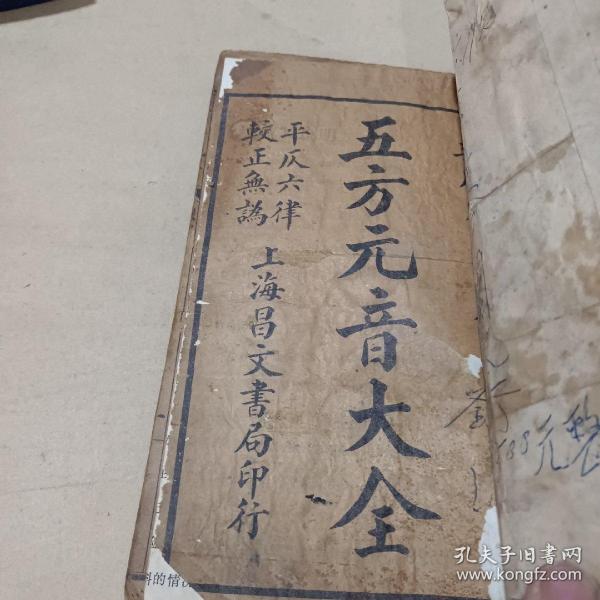 五方元音大全
平仄六律
較正無譌
上海昌文書局印行
188元整
料的情况
孔夫子旧书网
www.kongfz.com